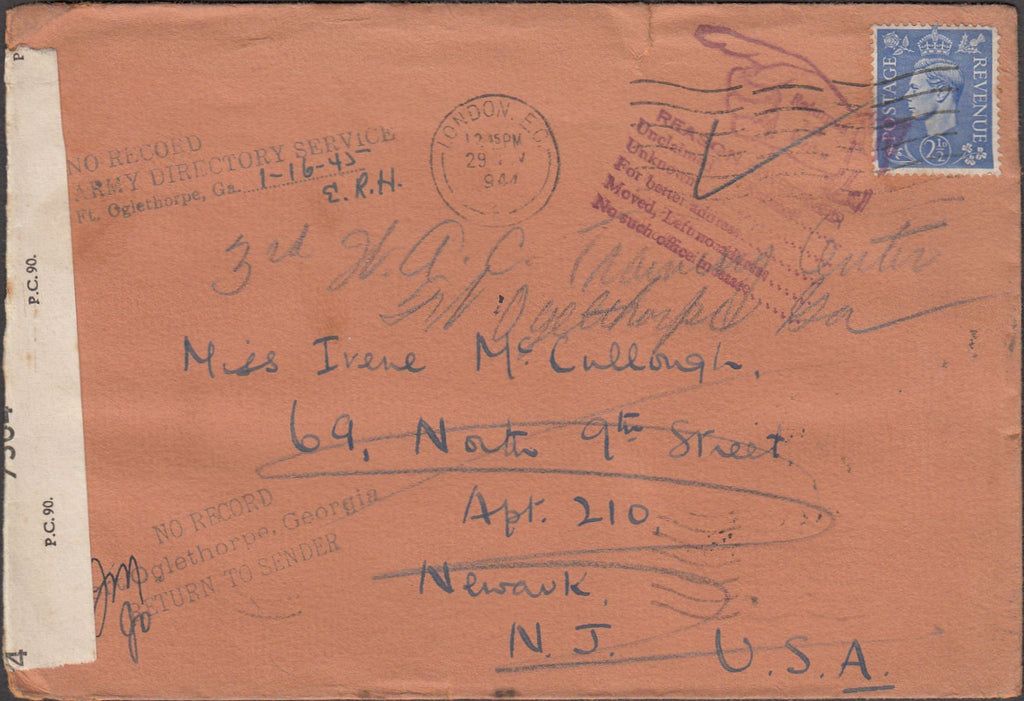 POSTAGE REVENUE
2½D
LONDON. E.C.
12 45 PM
29
944
NO RECORD
ARMY DIRECTORY SERVICE
Ft. Oglethorpe, Ga. 1-16-45
E.R.H.
REASON
Unclaimed
Unknown
For better address
Moved, Left no address
No such office in state
3rd W.A.C. Training Center
Ft Oglethorpe Ga
Miss Irene McCullough.
69, North 9th Street.
Apt. 210,
Newark.
N.J. U.S.A.
NO RECORD
Oglethorpe, Georgia
RETURN TO SENDER
JM
Jo
P.C. 90.
P.C. 90.